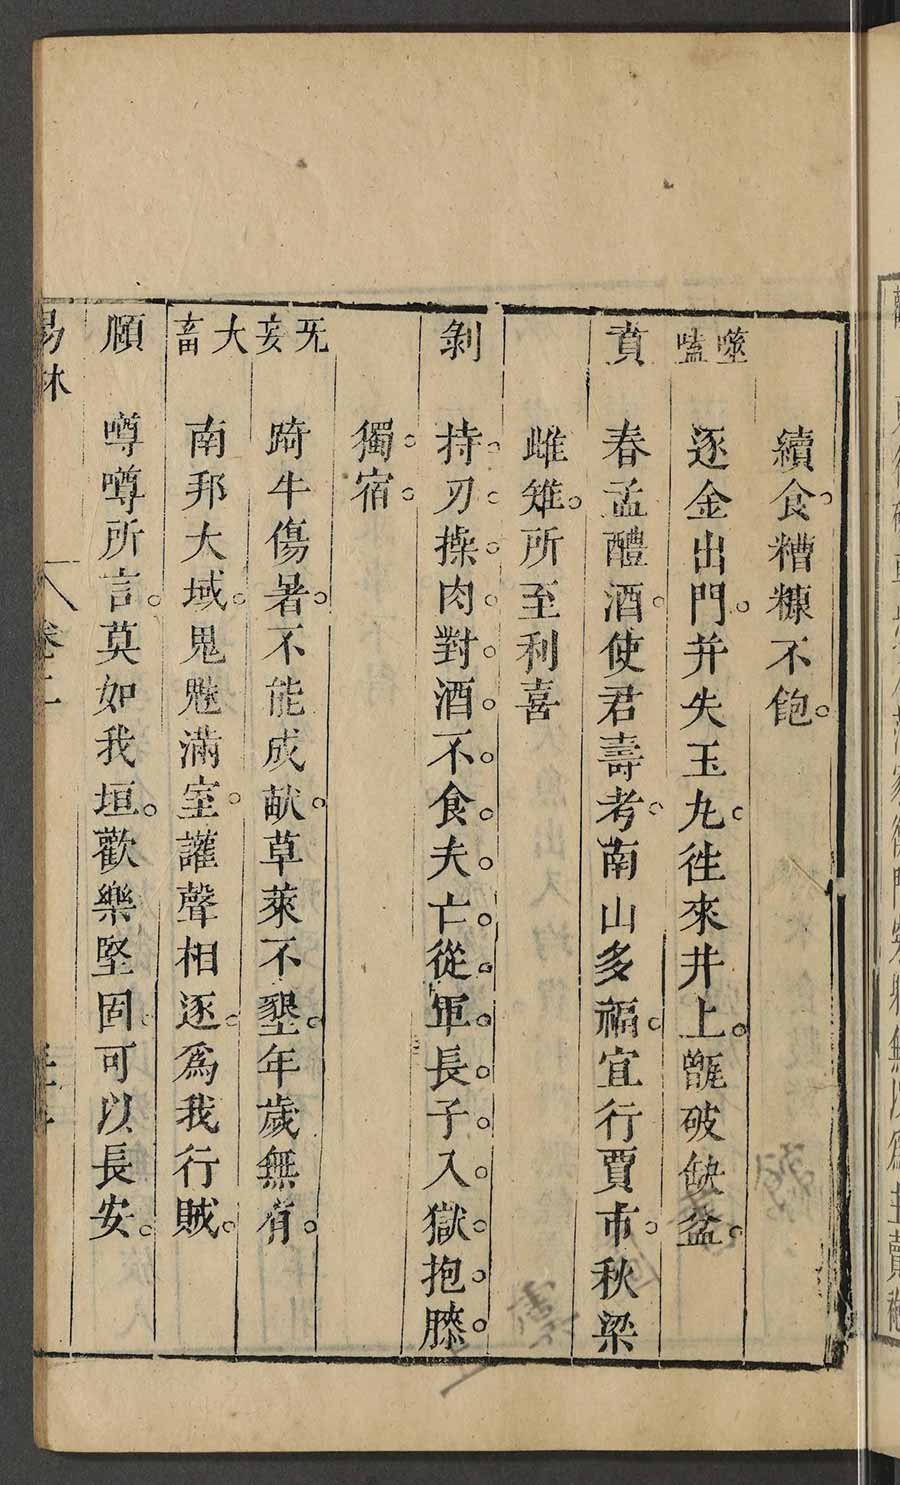 續食糟糠不飽
噬嗑 逐金出門并失玉丸往來井上甑破缺盆
賁 春孟醴酒使君壽考南山多福宜行賈市秋梁
雌雉所至利喜
剝 持刃操肉對酒不食夫亡從軍長子入獄抱膝
獨宿
无妄 踦牛傷暑不能成畝草萊不墾年歲無有
大畜 南邦大域鬼魅滿室讙聲相逐爲我行賊
頤 噂噂所言莫如我垣歡樂堅固可以長安
易林 卷二